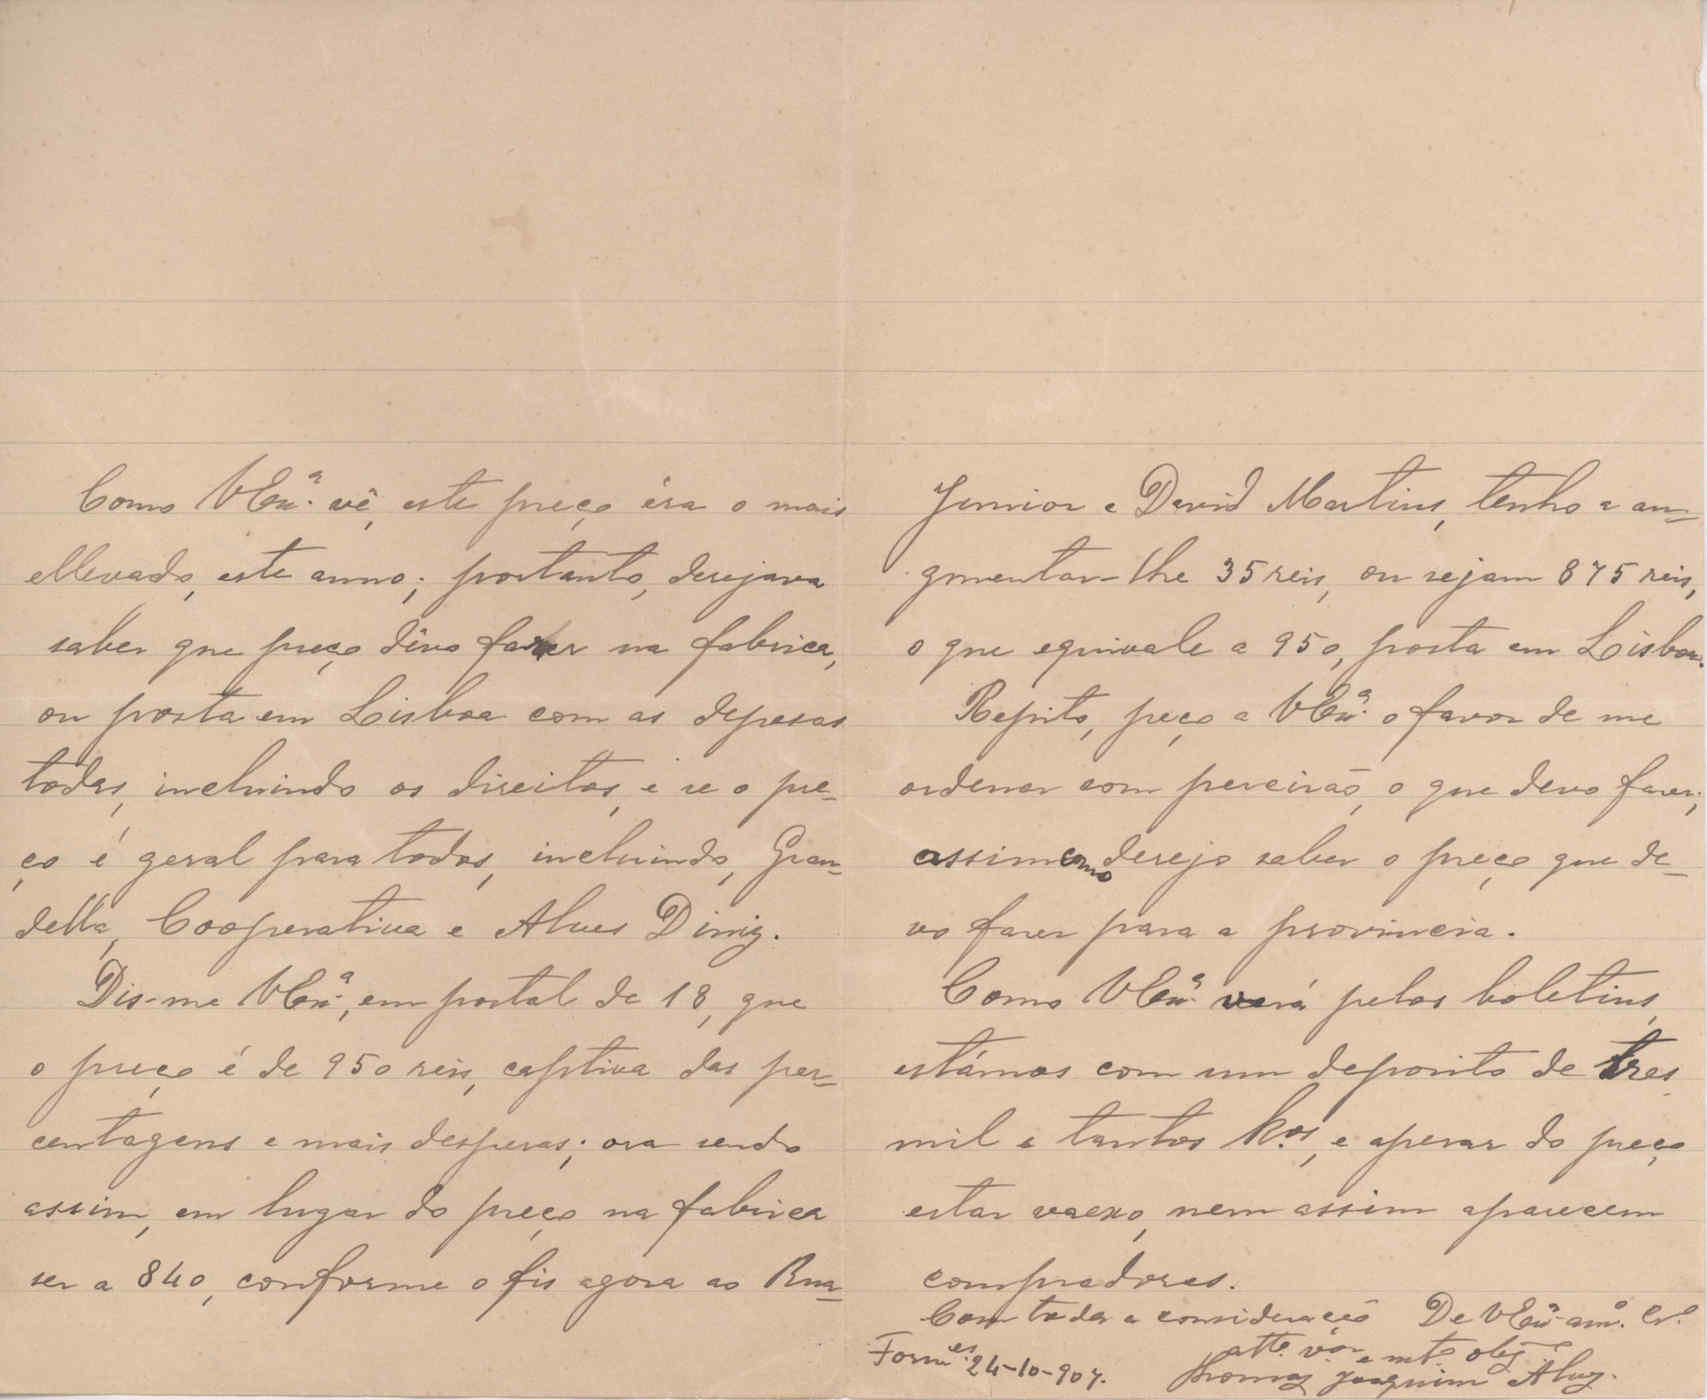 Como V Exª. vê, este preço éra o mais
ellevado, este anno; portanto, desejava
saber que preço dêvo fazer na fabrica,
ou posta em Lisboa com as depesas
todas, incluindo os direitos, e se o pre-
ço é geral para todos, incluindo, Gran-
della, Cooperativa e Alves Diniz.
Dis-me V Exª., em postal de 18, que
o preço é de 950 reis, captiva das per-
centagens e mais despesas; ora sendo
assim, em lugar do preço na fabrica
ser a 840, conforme o fis agora ao Rua-
Junior e David Martins, tenho a au-
gmentar-lhe 35 reis, ou sejam 875 reis,
o que equivale a 950, posta em Lisboa.
Repito, peço a V Exª. o favor de me
ordenar com percizão, o que devo fazer;
assim como desejo saber o preço que de-
vo fazer para a provincia.
Como V Exª. verá pelos boletins,
estámos com um deposito de tres
mil e tantos k.os, e apezar do preço
estar vaexo, nem assim aparecem
compradores.
Com toda a consideração De V Exª. amº. Crº.
attº. vºr. e mtº. obgº
Form.es 24-10-907.
Thomaz Joaquim Alvz.